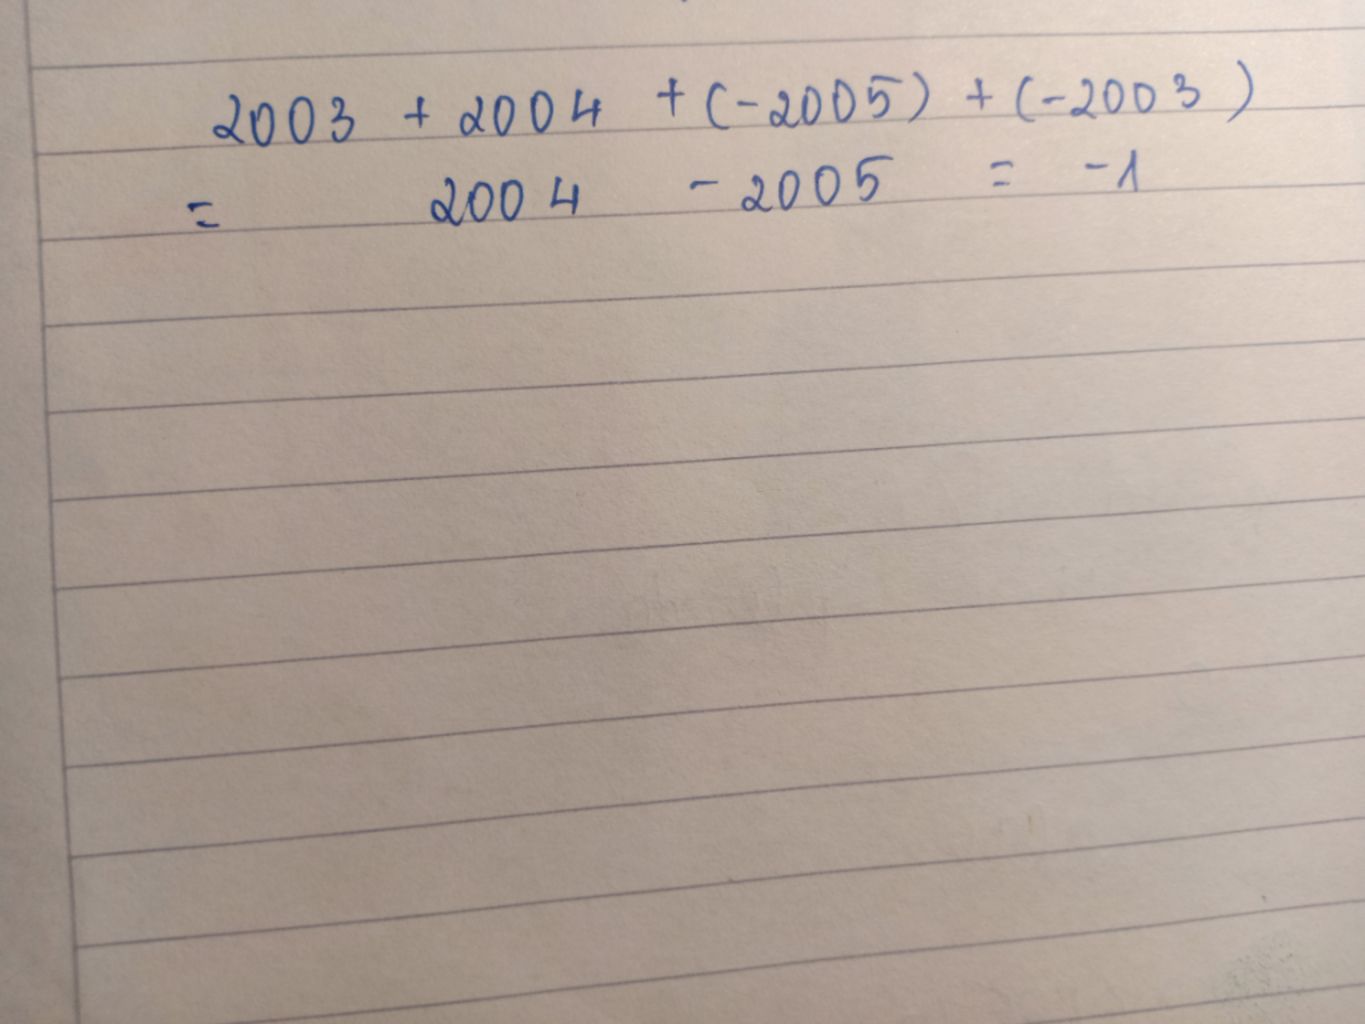 2003 + 2004 + (-2005) + (-2003)
= 2004 - 2005 = -1